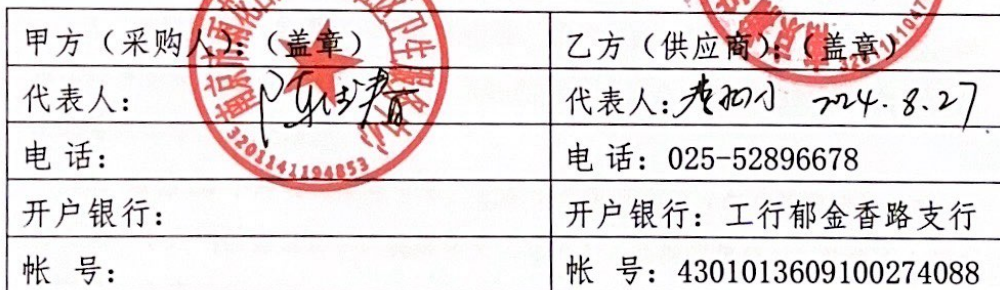 甲方（采购人）：（盖章）
乙方（供应商）：（盖章）
代表人：
代表人： 2024.8.27
电 话：
电 话：025-52896678
开户银行：
开户银行：工行郁金香路支行
帐 号：
帐 号：4301013609100274088
南京市雨花 卫生服务中心
3201141194853